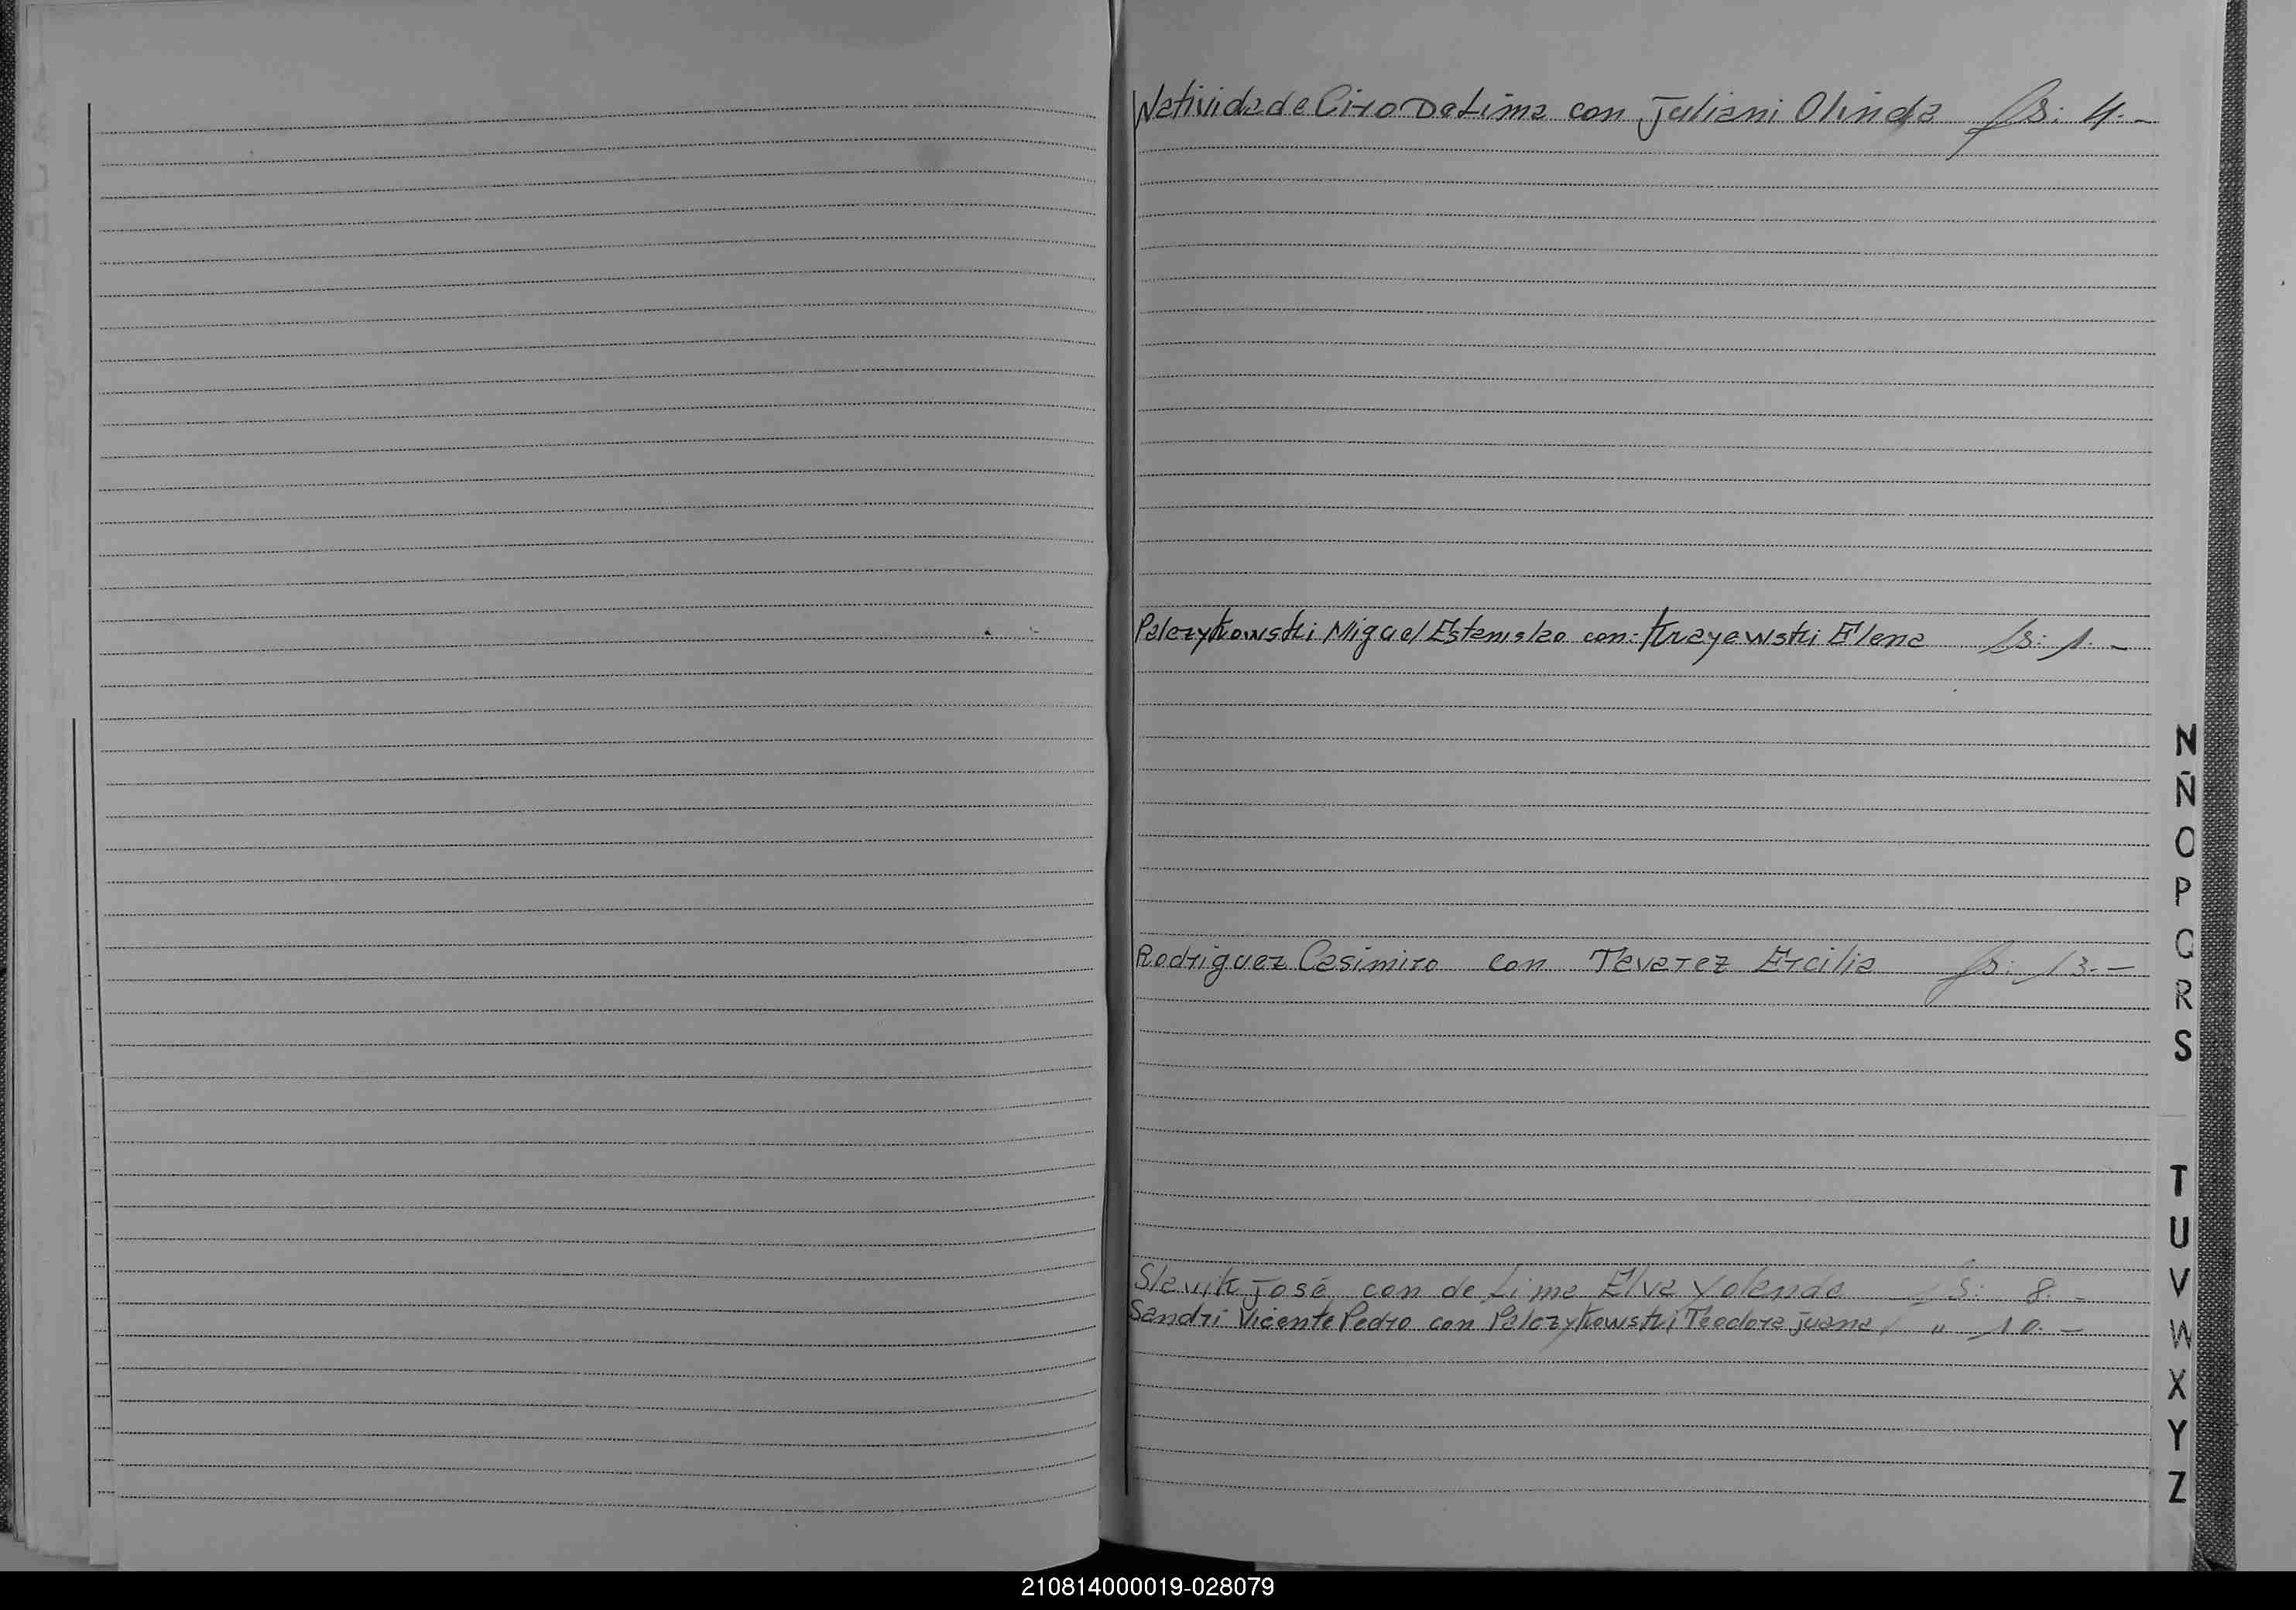 Natividade Ciro De Lima con Juliani Olinda fs: 4.-
Palczykowski Miguel Estanislao con: Krayewski Elena fs: 1.-
N
Ñ
O
P
Q
R
S
Rodriguez Casimiro con Tavarez Ercilia fs: 13.-
T
U
V
W
X
Y
Z
Slavik José con de Lima Elva Yolanda fs: 8.-
Sandri Vicente Pedro con Palczykowski Teodora Juana " 10.-
210814000019-028079